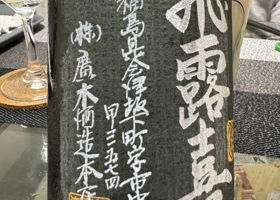 飛露喜
福島県会津坂下町字市中
甲三五七四
(株)廣木酒造本店